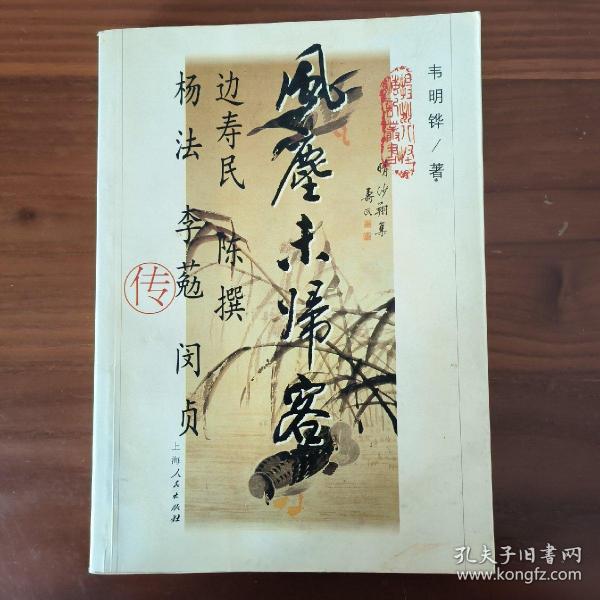 韦明铧/著
風塵未帰客
边寿民 陈撰
杨法 李葂 闵贞
传
晴沙翔集
寿民
上海人民出版社
孔夫子旧书网
www.kongfz.com